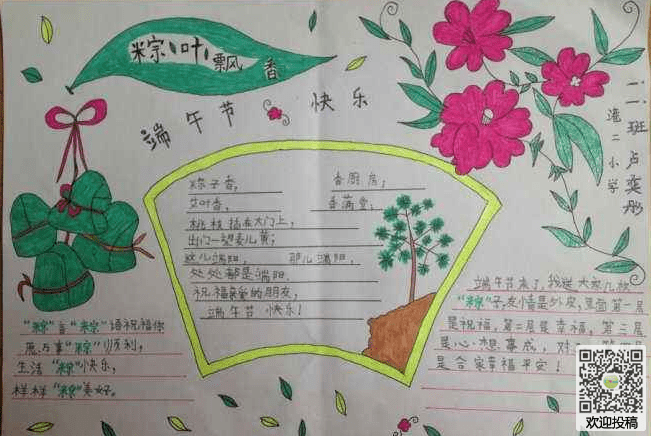 粽叶飘香
端午节 快乐
粽子香, 香厨房;
艾叶香, 香满堂;
桃枝插在大门上,
出门一望麦儿黄;
这儿端阳, 那儿端阳,
处处都是端阳.
祝福亲爱的朋友,
端午节 快乐!
二班 卢奕彤
准二小学
"粽"言"粽"语祝福你
愿万事"粽"顺利,
生活"粽"快乐,
样样"粽"美好。
端午节来了,我送大家几枚
"粽"子,友情是外皮,里面第一层
是祝福,第二层是幸福,第三层
是心想事成,
是合家幸福平安!
欢迎投稿